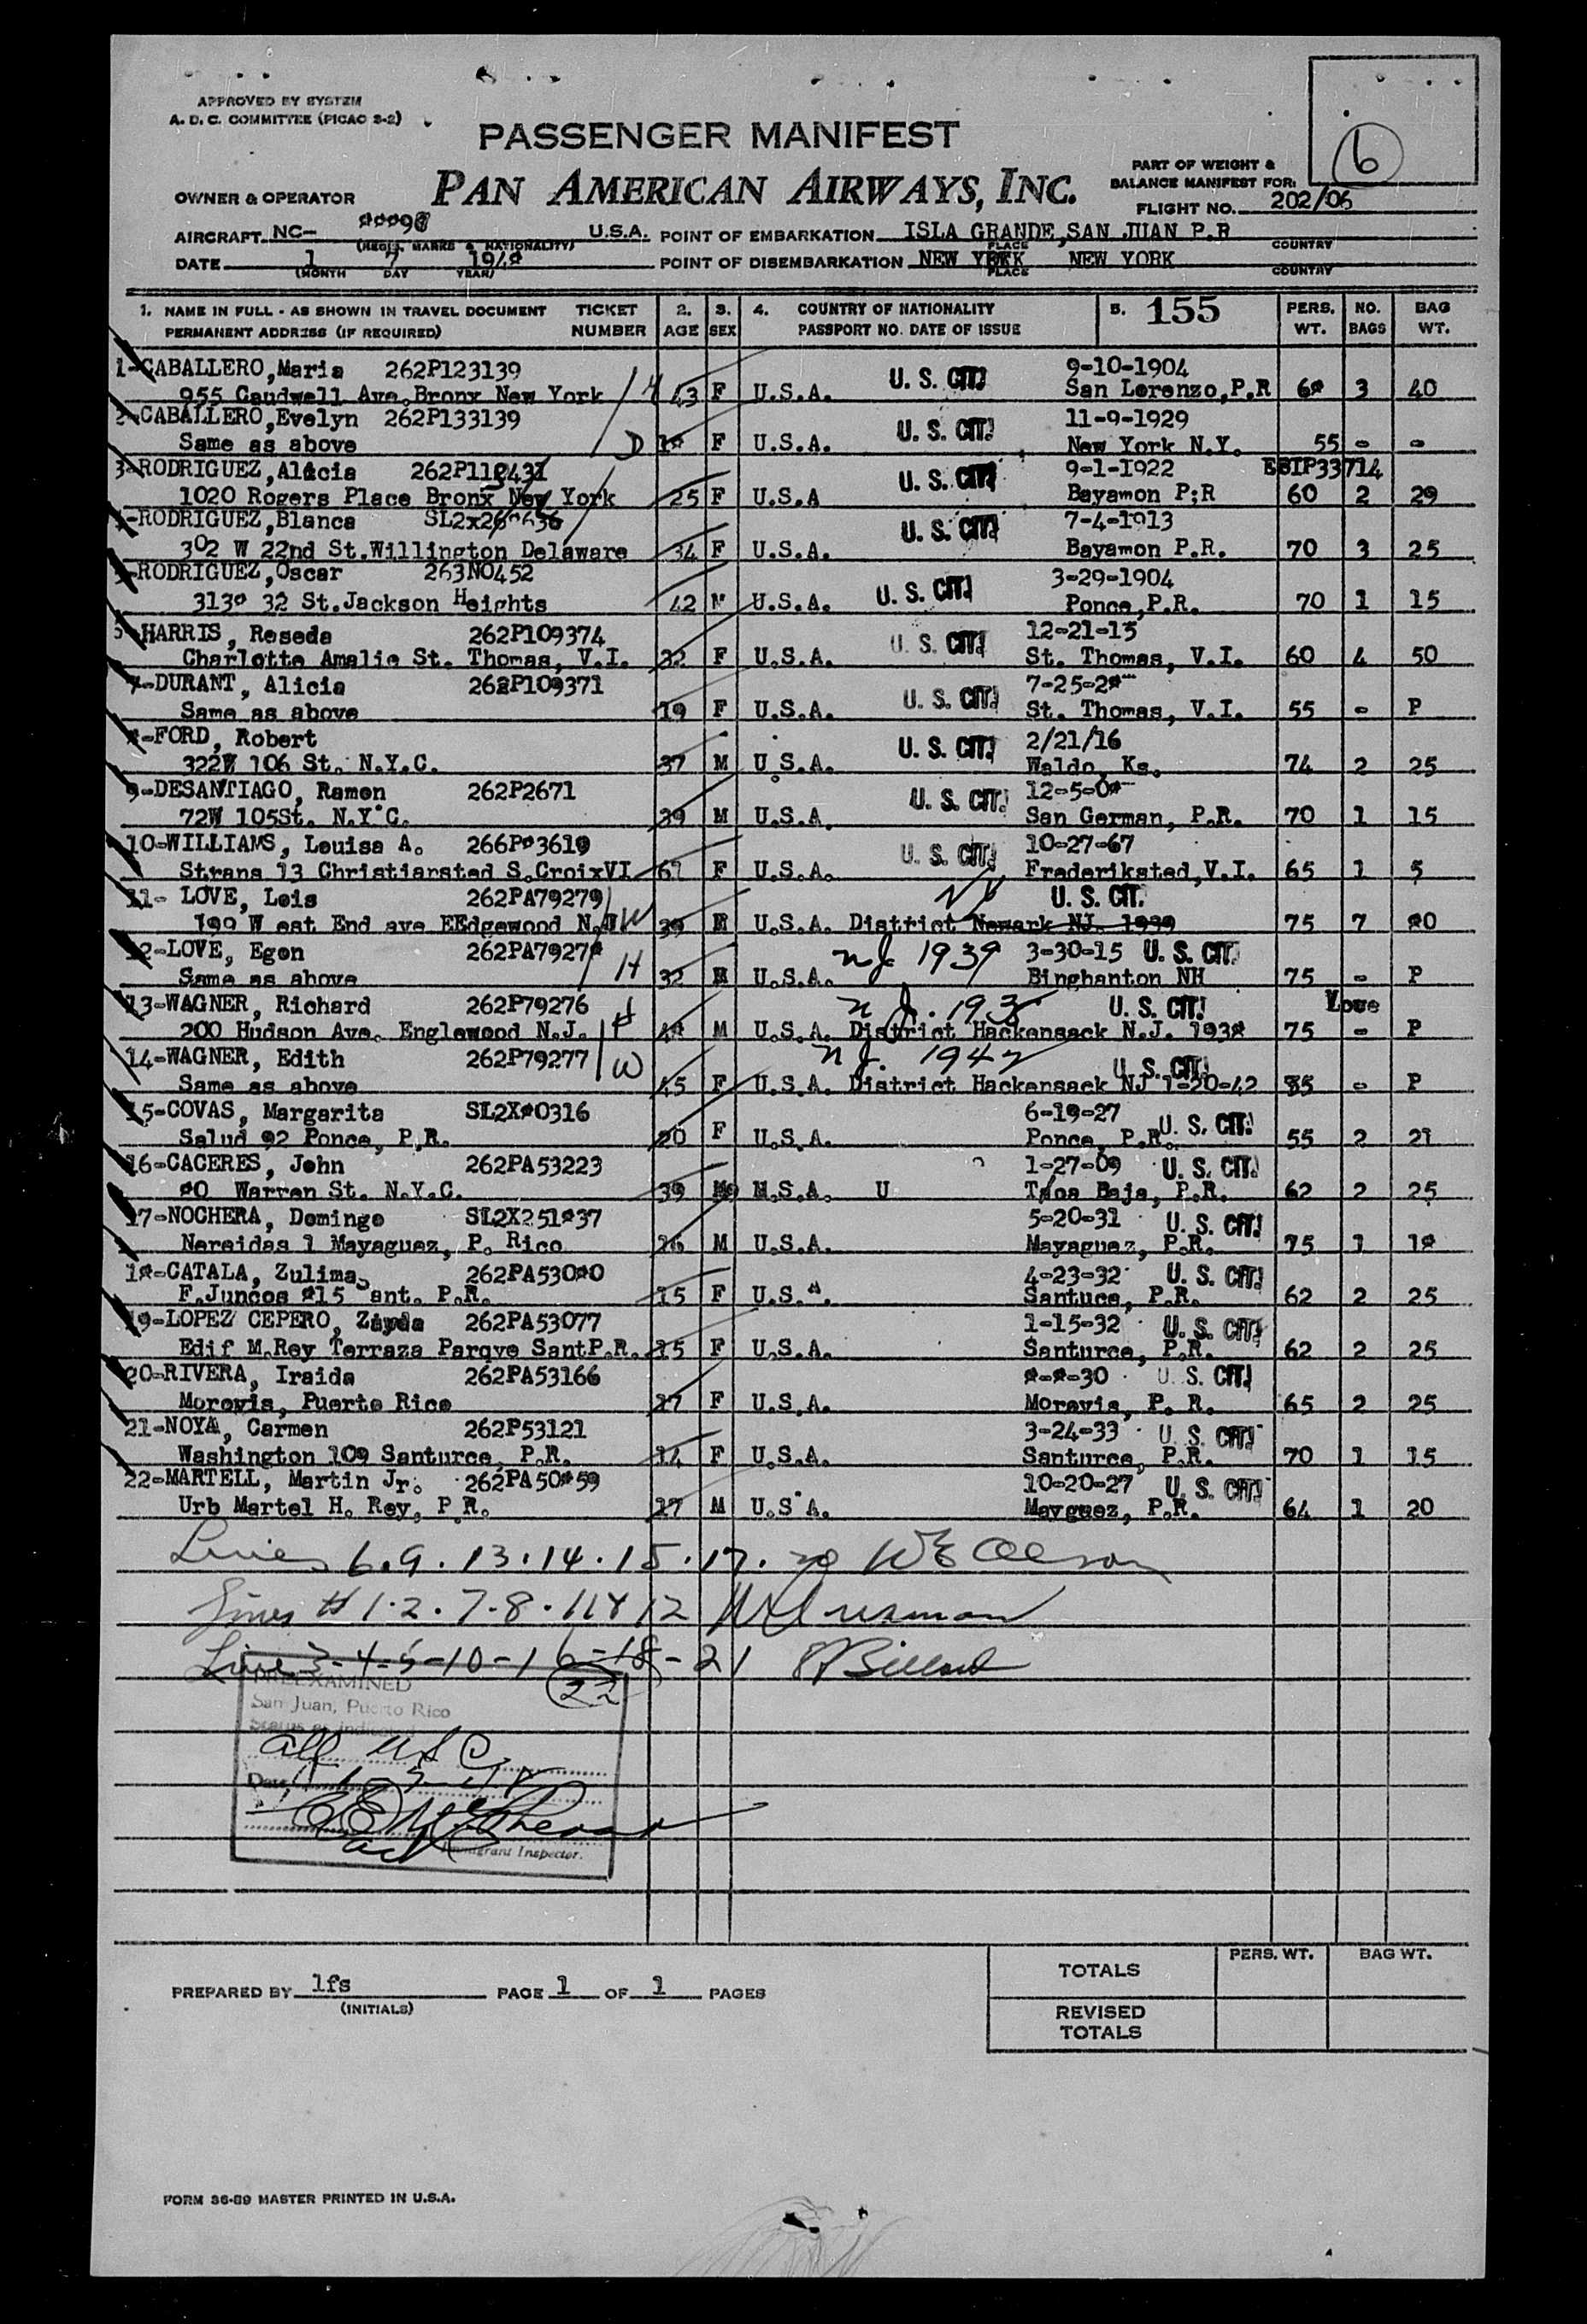 APPROVED BY SYSTEM
A. D. C. COMMITTEE (PICAO 3-2)
PASSENGER MANIFEST
6
PART OF WEIGHT &
BALANCE MANIFEST FOR:
OWNER & OPERATOR PAN AMERICAN AIRWAYS, INC.
FLIGHT NO. 202/06
AIRCRAFT NC- U.S.A. POINT OF EMBARKATION ISLA GRANDE, SAN JUAN P.R
(REGIS. MARKS & NATIONALITY) PLACE COUNTRY
DATE 1 7 194 POINT OF DISEMBARKATION NEW YORK NEW YORK
(MONTH DAY YEAR) PLACE COUNTRY
1. NAME IN FULL - AS SHOWN IN TRAVEL DOCUMENT TICKET 2. 3. 4. COUNTRY OF NATIONALITY 5. 155 PERS. NO. BAG
PERMANENT ADDRESS (IF REQUIRED) NUMBER AGE SEX PASSPORT NO. DATE OF ISSUE WT. BAGS WT.
1-CABALLERO,Maria 262P123139 U. S. CIT. 9-10-1904
955 Caudwell Ave.Bronx New York H 43 F U.S.A. San Lorenzo,P.R 3 40
2-CABALLERO,Evelyn 262P133139 U. S. CIT. 11-9-1929
Same as above D F U.S.A. New York N.Y. 55 - -
3-RODRIGUEZ,Alicia U. S. CIT. 9-1-1922
1020 Rogers Place Bronx New York 25 F U.S.A Bayamon P;R 60 2 29
4-RODRIGUEZ,Blanca U. S. CIT. 7-4-1913
302 W 22nd St.Willington Delaware 34 F U.S.A. Bayamon P.R. 70 3 25
5-RODRIGUEZ,Oscar 263N0452 U. S. CIT. 3-29-1904
32 St.Jackson Heights 42 M U.S.A. Ponce,P.R. 70 1 15
HARRIS, Reseda 262P109374 U. S. CIT. 12-21-15
Charlotte Amalie St. Thomas, V.I. 32 F U.S.A. St. Thomas, V.I. 60 4 50
7-DURANT, Alicia 262P109371 U. S. CIT.
Same as above 19 F U.S.A. St. Thomas, V.I. 55 - P
FORD, Robert U. S. CIT. 2/21/16
322W 106 St. N.Y.C. 37 M U.S.A. Waldo, Ks. 74 2 25
9-DESANTIAGO, Ramon 262P2671 U. S. CIT.
72W 105St. N.Y.C. 39 M U.S.A. San German, P.R. 70 1 15
10-WILLIAMS, Louisa A. U. S. CIT. 10-27-67
Strans 13 Christiansted S.CroixVI 67 F U.S.A. Frederiksted,V.I. 65 1 5
11- LOVE, Lois 262PA79279 W NJ U. S. CIT.
199 W est End ave EEdgewood 39 U.S.A. District Newark NJ. 1939 75 7
12-LOVE, Egon H NJ 1939 3-30-15 U. S. CIT.
Same as above 32 U.S.A. Binghanton NH 75 - P
13-WAGNER, Richard 262P79276 H U. S. CIT. Love
200 Hudson Ave. Englewood N.J. M U.S.A. District Hackensack N.J. 75 - P
14-WAGNER, Edith 262P79277 W NJ. 1942 U. S. CIT.
Same as above 45 F U.S.A. District Hackensack NJ 1-20-42 - P
15-COVAS, Margarita 6-19-27 U. S. CIT.
Salud 92 Ponce, P.R. 20 F U.S.A. Ponce, P.R. 55 2 21
16-CACERES, John 262PA53223 1-27-09 U. S. CIT.
Warren St. N.Y.C. 39 M.S.A. U Baja, P.R. 62 2 25
17-NOCHERA, Domingo U. S. CIT. 5-20-31
Nereidas 1 Mayaguez, P. Rico 16 M U.S.A. Mayaguez, P.R. 75 1
CATALA, Zulima 4-23-32 U. S. CIT.
F.Juncos P.R. 15 F Santuce, P.R. 62 2 25
19-LOPEZ CEPERO, Zayda 262PA53077 1-15-32 U. S. CIT.
Edif M.Rey Terraza Parqve SantP.R. 15 F U.S.A. Santurce, P.R. 62 2 25
20-RIVERA, Iraida 262PA53166 U. S. CIT.
Morovis, Puerto Rico 17 F U.S.A. Morovis, P. R. 65 2 25
21-NOYA, Carmen 262P53121 3-24-33 U. S. CIT.
Washington 109 Santurce, P.R. 14 F U.S.A. Santurce, P.R. 70 1 15
22-MARTELL, Martin Jr. 10-20-27 U. S. CIT.
Urb Martel H. Rey, P.R. M U.S.A. Mayguez, P.R. 64 1 20
Lines 6.9.13.14.15.17.20
Lines # 1.2.7.8.11 & 12
Line 3-4-5-10-16-18-21
22
PREEXAMINED
San Juan, Puerto Rico
Status as indicated
all USC
Date
Immigrant Inspector.
PERS. WT. BAG WT.
TOTALS
PREPARED BY lfs PAGE 1 OF 1 PAGES
(INITIALS)
REVISED
TOTALS
FORM 36-89 MASTER PRINTED IN U.S.A.